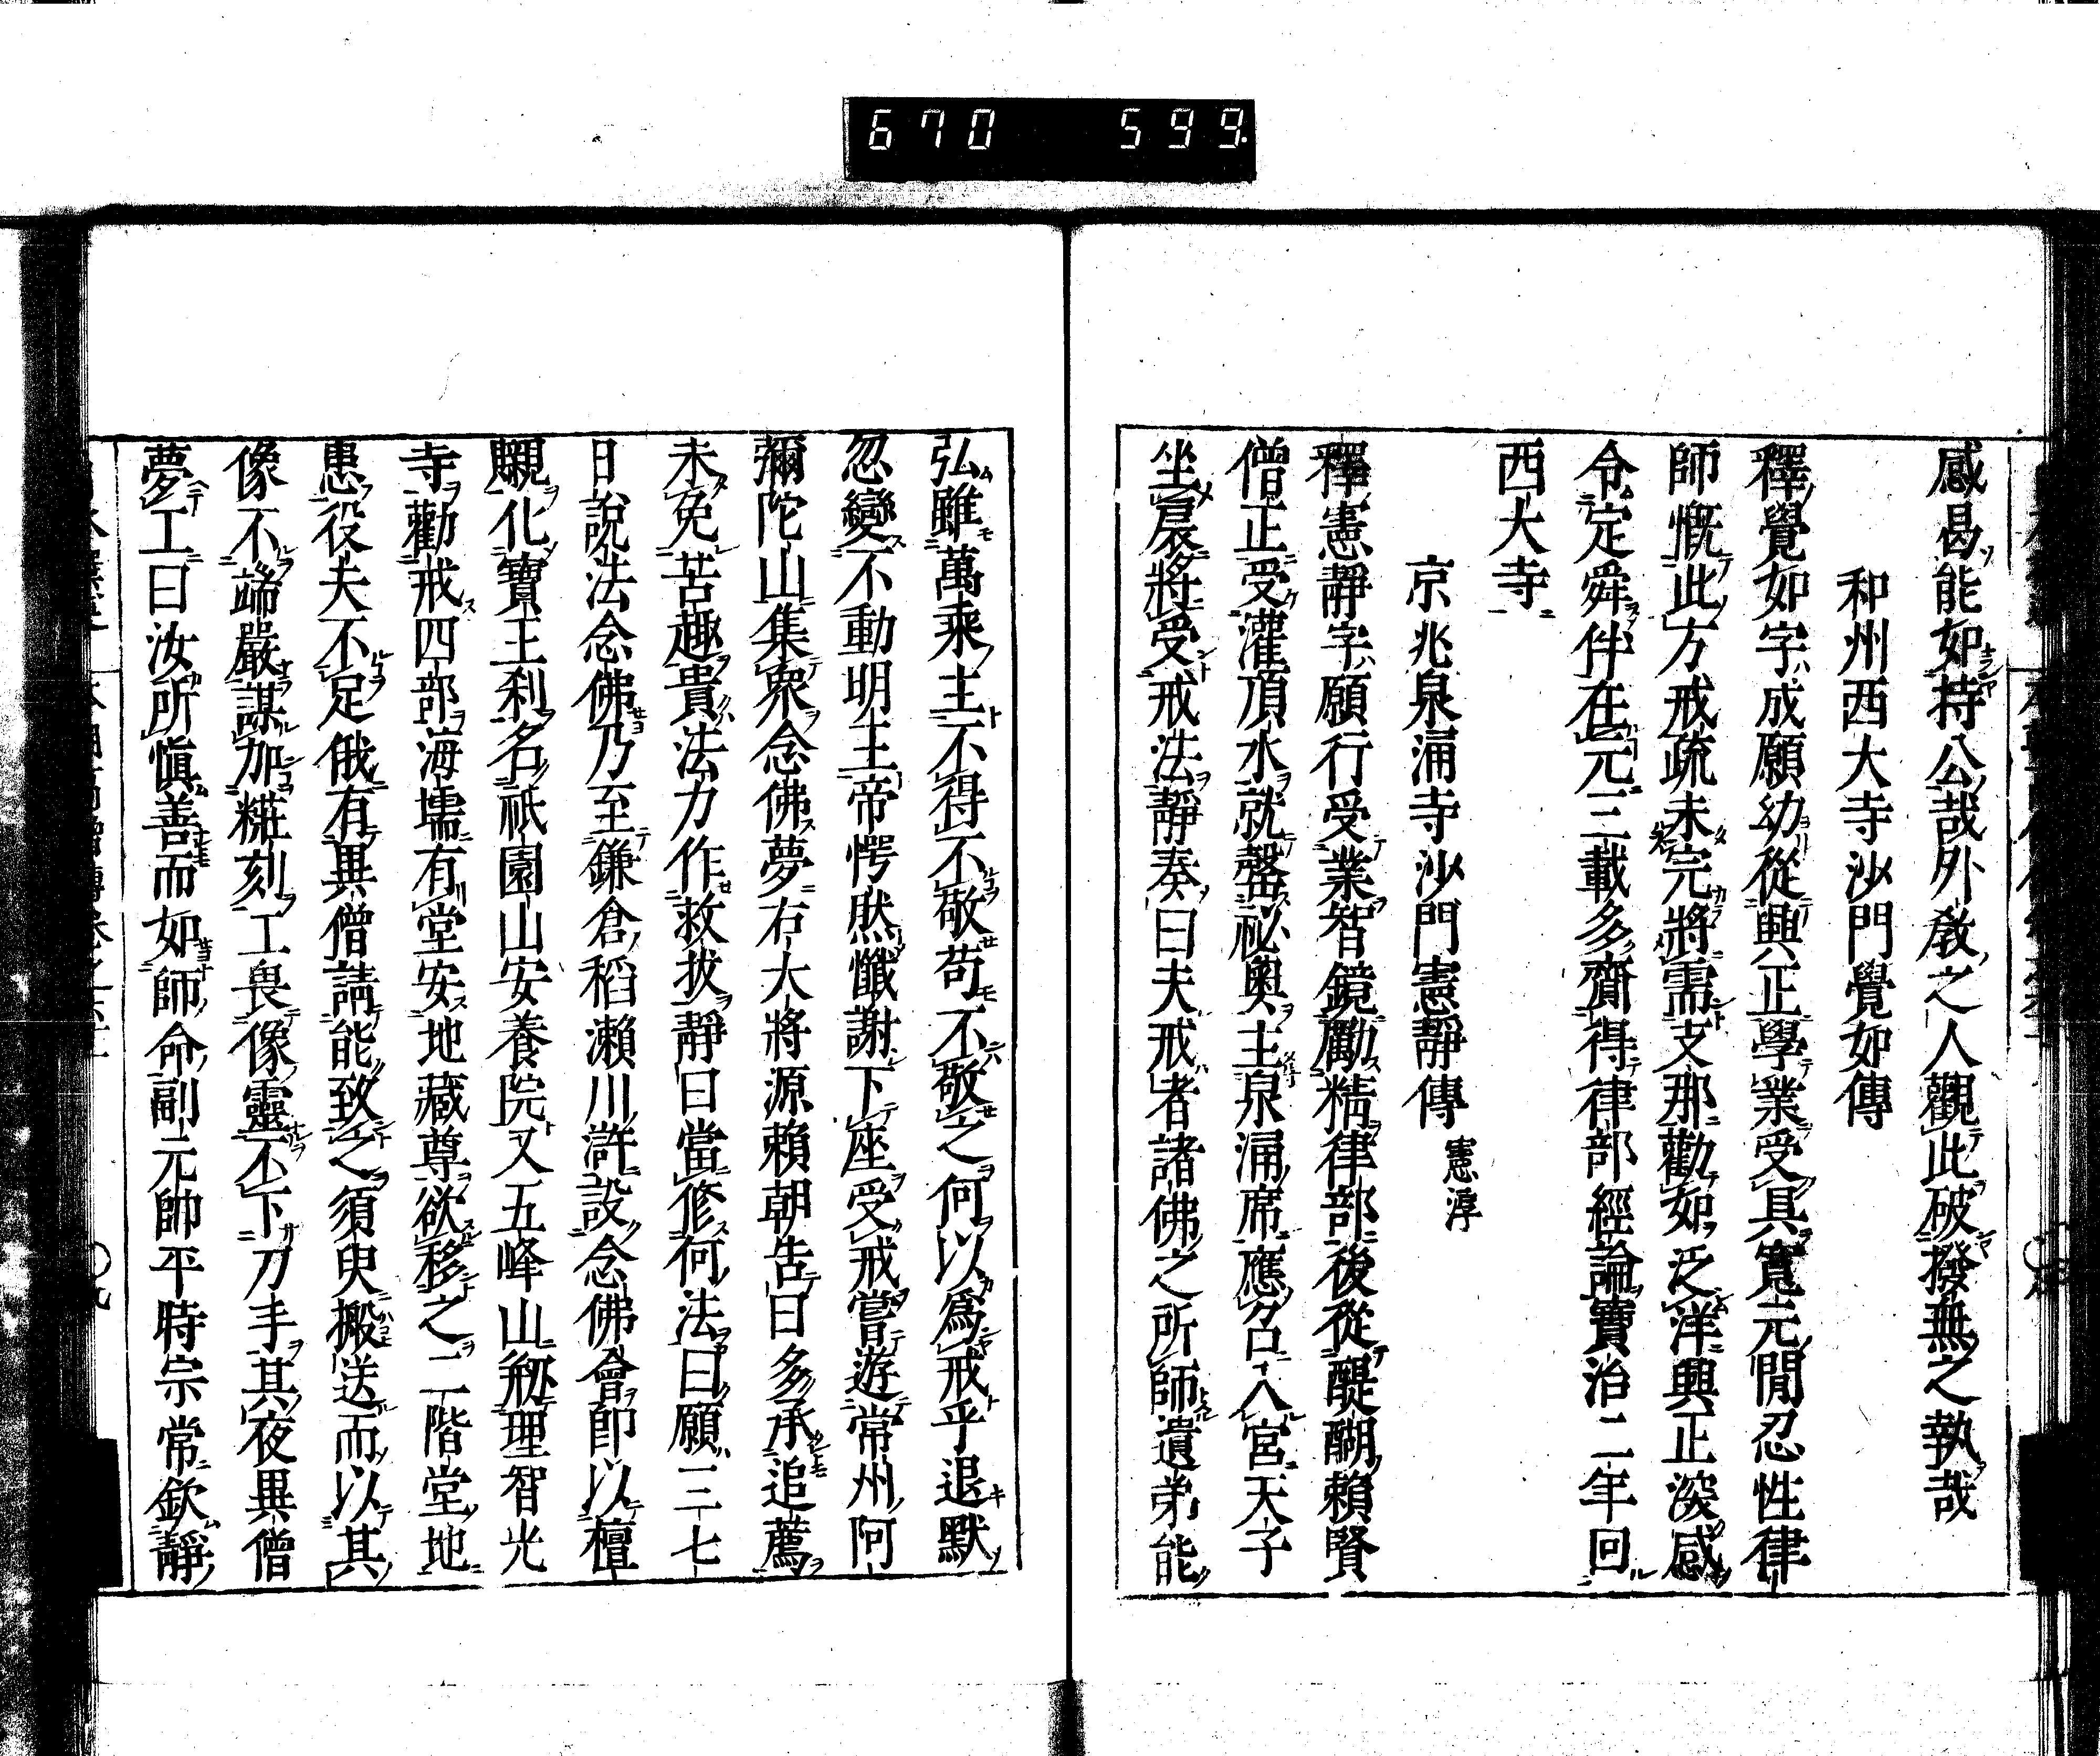 670 599
感曷能如持公哉外教之人觀此破撥無之執哉
和州西大寺沙門覺如傳
釋覺如字成願幼從興正學業受具寬元間忍性律
師慨此方戒疏未完將需支那勸如泛洋興正深感
令定舜伴在元三載多齎得律部經論寶治二年回
西大寺
京兆泉涌寺沙門憲靜傳 憲淳
釋憲靜字願行受業智鏡勵精律部後從醍醐賴賢
僧正受灌頂水就罄祕奥主泉涌席應召入宮天子
坐扆將受戒法靜奏曰夫戒者諸佛之所師遺弟能
弘雖萬乘主不得不敬苟不敬之何以爲戒乎退默
忽變不動明王帝愕然懺謝下座受戒嘗遊常州阿
彌陀山集衆念佛夢右大將源賴朝告曰多承追薦
未免苦趣貴法力作救拔靜曰當修何法曰願三七
日說法念佛乃至鎌倉稻瀬川滸設念佛會即以檀
嚫化寶王刹名祇園山安養院又五峰山剏理智光
寺勸戒四部海壖有堂安地藏尊欲移之二階堂地
患役夫不足俄有異僧請能致之須臾搬送而以其
像不端嚴謀加糚刻工畏像靈不下刀手其夜異僧
夢工曰汝所愼善而如師命副元帥平時宗常欽靜